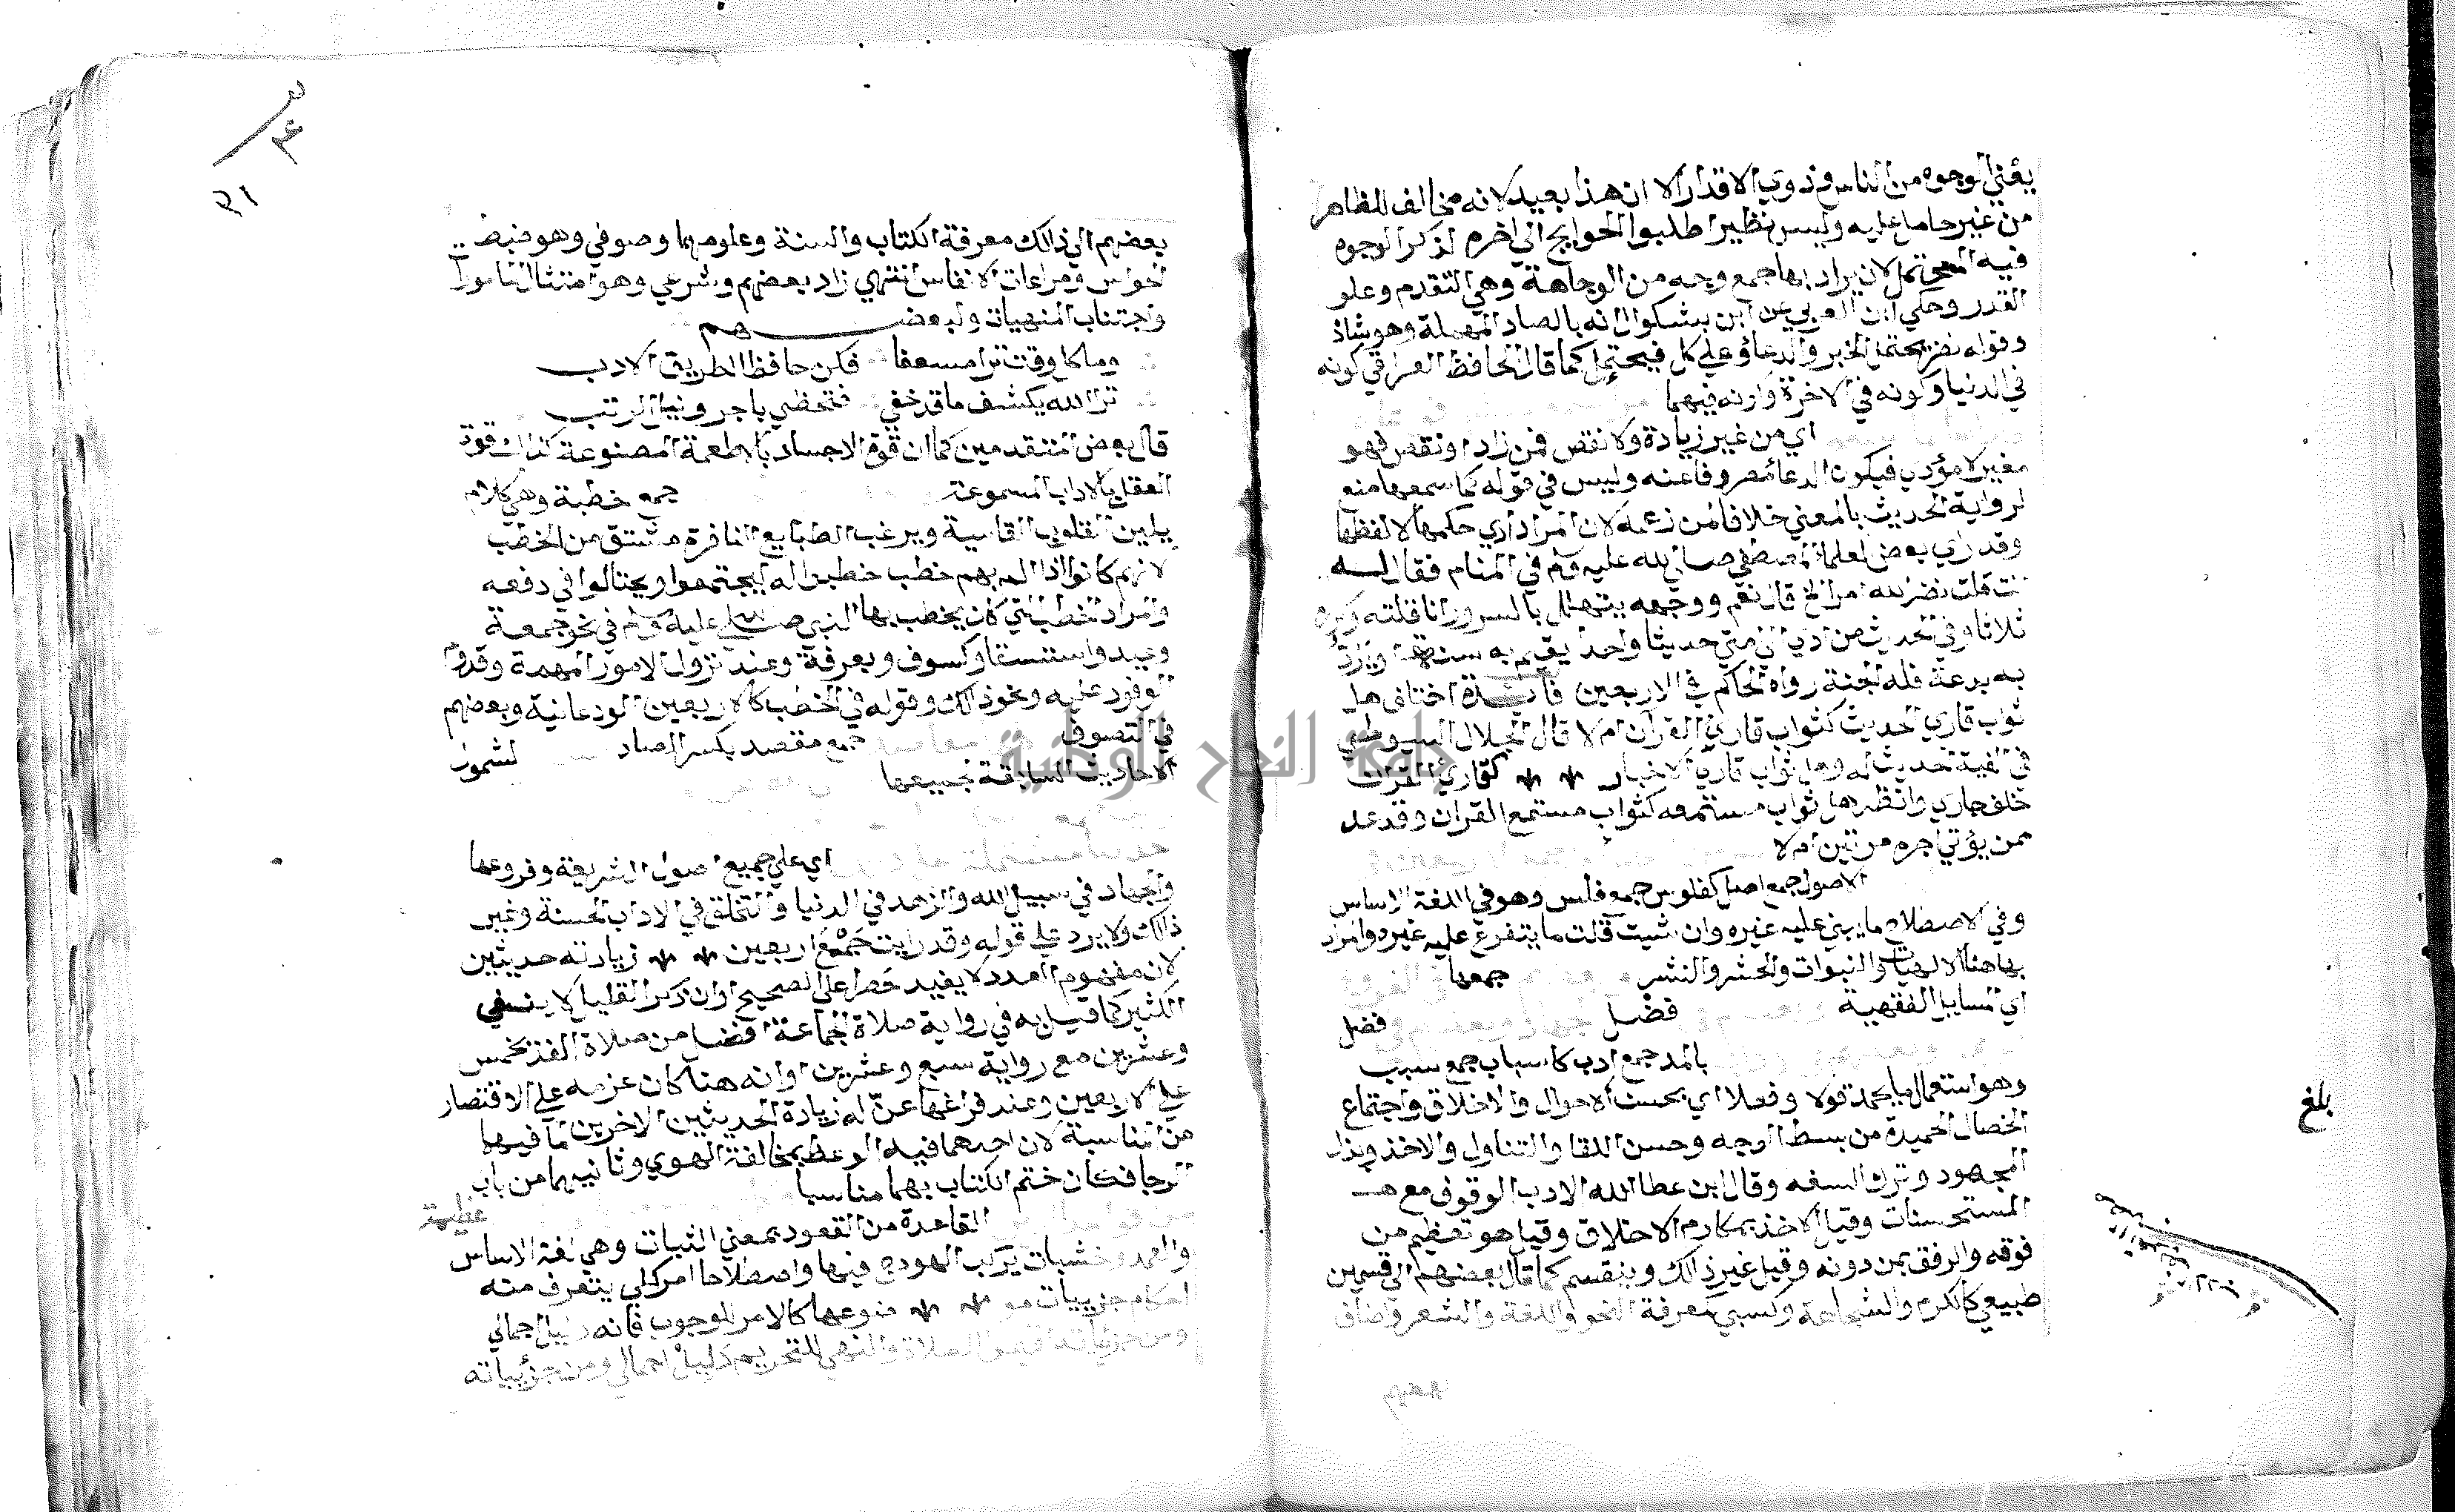 يعني الوجوه من الناس وذوي الاقدار الا ان هذا بعيد لانه مخالف للظاهر
من غير حامل عليه وليس نظير اطلبوا الحوايج الى اخره لذكر الوجوه
فيه المحتمل لان يراد بها جمع وجه من الوجاهة وهي التقدم وعلو
القدر وحكي ابن العربي عن ابن بشكوال انه بالصاد المهملة وهو شاذ
وقوله نضر يحتمل الخبر والدعا وعلى كل فيحتمل كما قال الحافظ العراقي كونه
في الدنيا وكونه في الاخرة وانه فيهما
اي من غير زيادة ولا نقص فمن زاد او نقص فهو
مغير لا مؤدي فيكون الدعا مصروفا عنه وليس في قوله كما سمعها منع
لرواية الحديث بالمعني خلافا لمن زعمه لان المراد ادي حكمها لا لفظها
وقد راي بعض العلماء المصطفى صلى الله عليه وسلم في المنام فقال له
انت قلت نضر الله امرا الخ قال نعم ووجهه يتهلل بالسرور انا قلته وكرره
ثلاثا وفي الحديث من ادي الى امتي حديثا واحدا يقيم به سنة او يرد
به بدعة فله الجنة رواه الحاكم في الاربعين فايدة اختلف هل
ثواب قاري الحديث كثواب قاري القرآن ام لا قال الجلال السيوطي
في الفية الحديث له وهل ثواب قاري الاخبار كقاري القران
خلف جاري وانظر هل ثواب مستمعه كثواب مستمع القران وقد عد
ممن يؤتي اجره مرتين ام لا
الاصول جمع اصل كفلوس جمع فلس وهو في اللغة الاساس
وفي الاصطلاح ما يبني عليه غيره وان شيت قلت ما يتفرع عليه غيره والمراد
بها هنا الالهيات والنبوات والحشر والنشر جمعها
اي المسايل الفقهية فضل فضل
بالمد جمع ادب كاسباب جمع سبب
وهو استعمال ما يحمد قولا وفعلا اي بحسن الاحوال والاخلاق واجتماع
الخصال الحميدة من بسط الوجه وحسن اللقا والتناول والاخذ وبذل
المجهود وترك السفه وقال ابن عطا الله الادب الوقوف مع
المستحسنات وقيل الاخذ بمكارم الاخلاق وقيل هو تعظيم من
فوقه والرفق بمن دونه وقيل غير ذلك وينقسم كما قال بعضهم الى قسمين
طبيعي كالكرم والشجاعة وكسبي كمعرفة النحو واللغة والشعر واضاف
بعضهم
بلغ
بعضهم الى ذلك معرفة الكتاب والسنة وعلومهما وصوفي وهو ضبط
الحواس ومراعات الانفاس انتهي زاد بعضهم وشرعي وهو امتثال المامورات
واجتناب المنهيات ولبعضهم
وما كل وقت ترا مسعفا فكن حافظا لطريق الادب
ترا الله يكشف ما قد خفي فتحظي باجر ونيل الرتب
قال بعض المتقدمين كما ان قوة الاجساد بالاطعمة المصنوعة كذلك قوة
العقل بالاداب المسموعة جمع خطبة وهي كلام
يلين القلوب القاسية ويرغب الطبايع النافرة مشتق من الخطب
لانهم كانوا اذا الم بهم خطب خطبوا له ليجتمعوا ويحتالوا في دفعه
والمراد الخطب التي كان يخطب بها النبي صلى الله عليه وسلم في نحو جمعة
وعيد واستسقا وكسوف وبعرفة وعند نزول الامور المهمة وقدوم
الوفود عليه ونحو ذلك وقوله في الخطب كالاربعين الودعانية وبعضهم
في التصوف جمع مقصد بكسر الصاد لشمول
الاحاديث السابقة لجميعها
اي على جميع اصول الشريعة وفروعها
والجهاد في سبيل الله والزهد في الدنيا والتخلق في الاداب الحسنة وغير
ذلك ولا يرد على قوله وقد رايت جمع اربعين زيادته حديثين
لان مفهوم العدد لا يفيد حصرا على الصحيح او ان ذكر القليل لا ينفي
الكثير كما قيل به في رواية صلاة الجماعة افضل من صلاة الفذ بخمس
وعشرين مع رواية سبع وعشرين او انه هنا كان عزمه على الاقتصار
على الاربعين وعند فراغها عن له زيادة الحديثين الاخرين لما فيهما
من المناسبة لان احدهما فيه الوعظ بمخالفة الهوي وثانيهما من باب
الرجا فكان ختم الكتاب بهما مناسبا
عظيمة
القاعدة من القعود بمعني الثبات وهي لغة الاساس
والعمد وخشبات يركب الهودج فيها واصطلاحا امر كلي يتعرف منه
احكام جزييات موضوعها كالامر للوجوب فانه دليل اجمالي
ومن جزئياته اقيموا الصلاة والنهي للتحريم دليل اجمالي ومن جزئياته
جامعة النجاح الوطنية